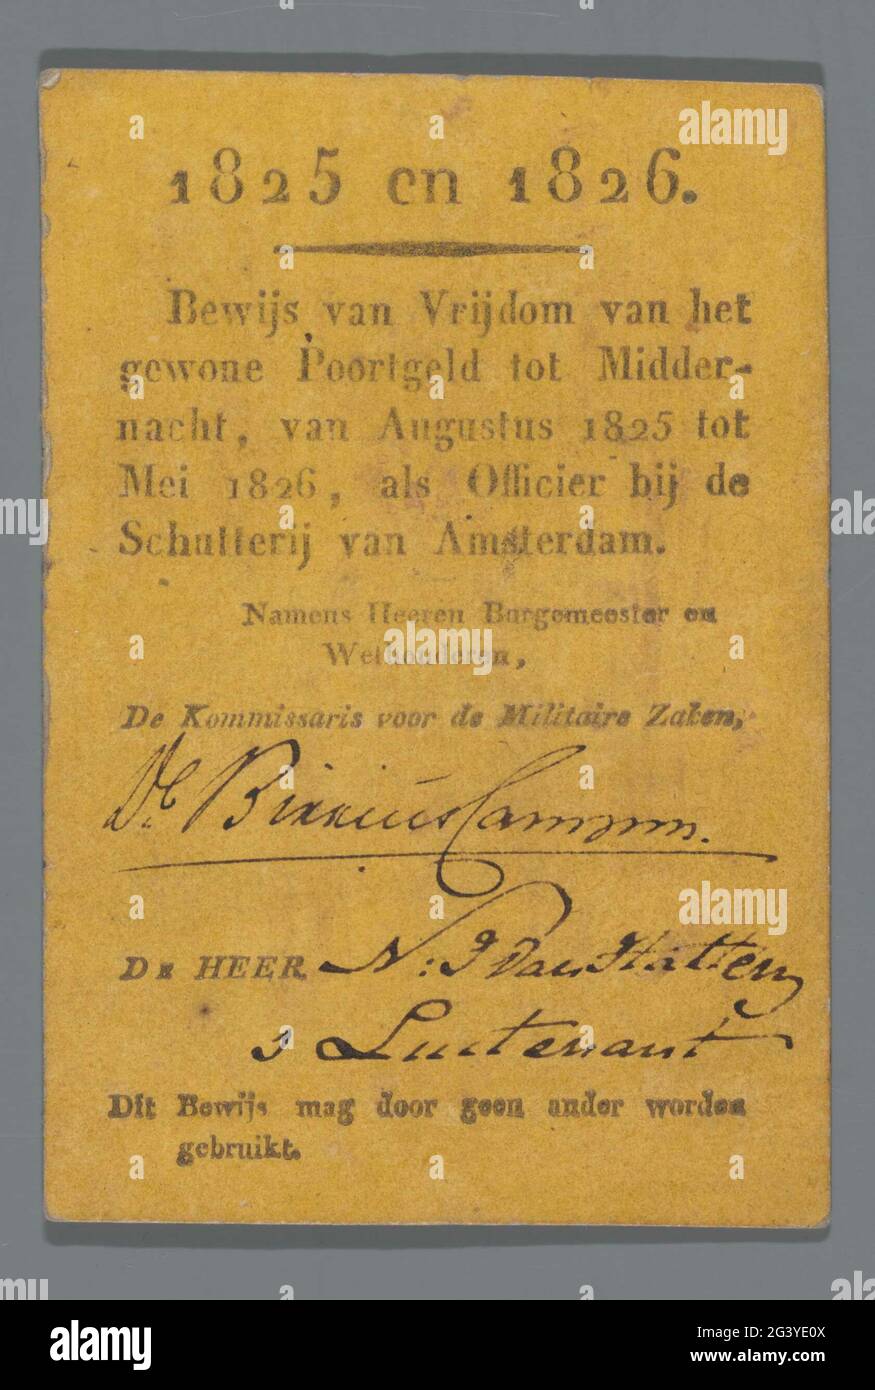 1825 en 1826.
Bewijs van Vrijdom van het
gewone Poortgeld tot Midder-
nacht, van Augustus 1825 tot
Mei 1826, als Officier bij de
Schutterij van Amsterdam.
Namens Heeren Burgemeester en
Wethouderen,
De Kommissaris voor de Militaire Zaken,
De HEER N: J Van Hatten
Luitenant
Dit Bewijs mag door geen ander worden
gebruikt.
alamy
Image ID: 2G3YE0X
www.alamy.com